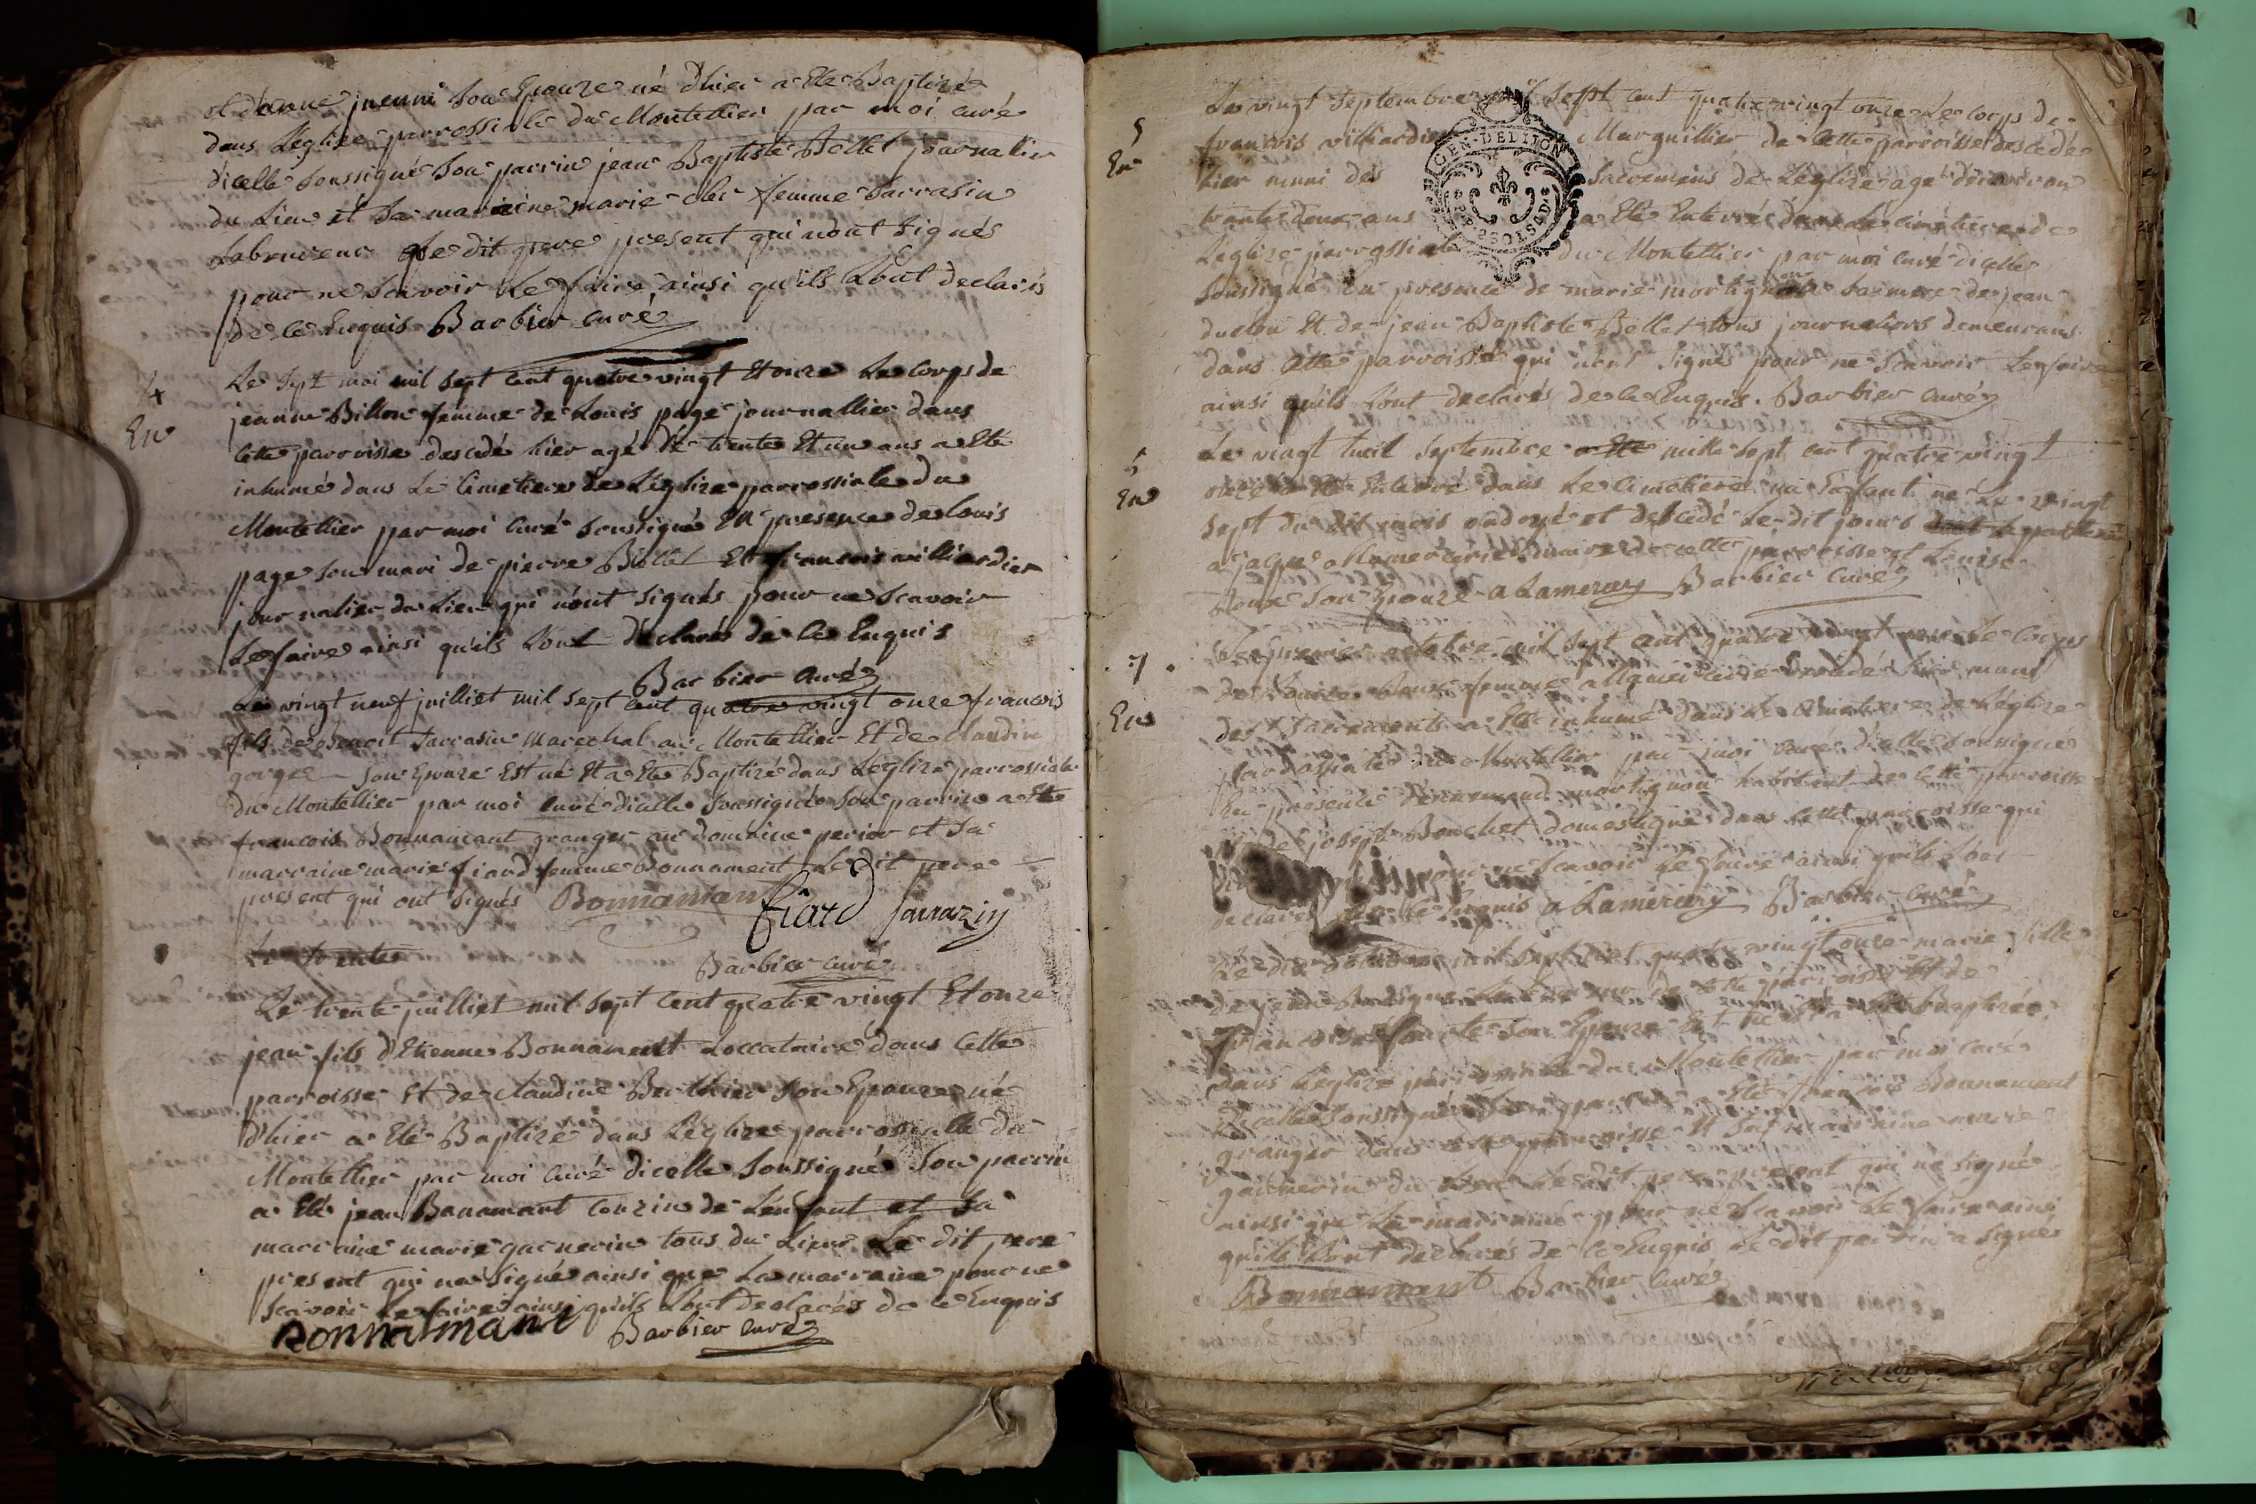 et d'anne jneuni Son Epouze né d'hier a Eté Baptizé
dans L'eglize parrossiale du Montellier par moi curé
d'icelle Soussigné Son parrin jean Baptiste Bellet journalier
du Lieu et Sa marraine marie femme Sarrasin
Laboureur Le dit pere present qui n'ont Signés
pour ne Scavoir Le faire ainsi qu'ils L'ont declarés
de ce Enquis Barbier curé
4
En
Le Sept mai mil Sept Cent quatre vingt Et onze Le corps de
jeanne Billon femme de Louis page journallier dans
cette parroisse decedé hier agé de trente Et un ans a Eté
inhumé dans Le Cimetiere de L'eglize parrossialle du
Montellier par moi Curé Soussigné En presence de Louis
page Son mari de pierre Et francois williardier
journalier du Lieu qui n'ont Signés pour ne Scavoir
Le faire ainsi qu'ils L'ont declarés de ce Enquis
Barbier Curé
Le vingt neuf juilliet mil Sept Cent quatre vingt onze francois
fils de Benoit Sarrasin marechal au Montellier Et de Claudine
gorges Son Epouze Est né Et a Eté Baptizé dans L'eglize parrossiale
du Montellier par moi curé d'icelle Soussigné Son parrin a Eté
francois Bonnamant granger au domaine perier et Sa
marraine marie fiard femme Bonnament Le dit pere
present qui ont Signés Bonnamant
fiard Sarrazin
Le trente
Barbier curé
Le trente juilliet mil Sept Cent quatre vingt Et onze
jean fils d'Etienne Bonnament Loccataire dans Cette
parroisse Et de Claudine Berthier Son Epouze né
d'hier a Eté Baptizé dans L'eglize parrossialle du
Montellier par moi Curé d'icelle Soussigné Son parrin
a Eté jean Banamant Couzin de L'enfant et Sa
marraine marie garnerin tous du Lieu Le dit pere
present qui n'a Signé ainsi que La marraine pour ne
Scavoir Le faire ainsi qu'ils L'ont declarés de ce Enquis
Bonnamant Barbier curé
5
En
Le vingt Septembre mil Sept cent quatre vingt onze Le corps de
francois villiardier Marguillier de Cette parroisse decedé
hier muni des Sacremens de L'eglize agé d'environ
trente deux ans a Eté Enterré dans Le cimetiere de
L'eglize parrossiale du Montellier par moi curé d'icelle
GEN·DE LIJON
Soussigné En presence de marie Sa mere de jean
duclou Et de jean Baptiste Bellet tous journaliers demeurans
dans Cette parroisse qui n'ont Signés pour ne Scavoir Le faire
ainsi qu'ils L'ont declarés de ce Enquis Barbier Curé
5
En
Le vingt huit Septembre a Eté mille Sept cent quatre vingt
onze a Eté Enterré dans Le Cimetiere un Enfant né Le vingt
Sept du dit mois ondoyé et decedé Le dit jours
maire de cette parroisse et Louise
Son Epouze a Lamercery Barbier Curé
7
En
Le premier octobre mil Sept cent quatre vingt onze Le Corps
de Louise femme decedé hier muni
des Sacrements a Eté inhumé dans Le Cimetiere de L'eglize
parrossiale du Montellier par moi Curé d'icelle Soussigné
En presence mortignon habitant de Cette parroisse
de joseph Bouchet domestique dans Cette parroisse qui
pour ne Scavoir Le faire ainsi qu'ils L'ont
declarés de ce Enquis a Lamercery Barbier Curé
Le dix octobre mil Sept Cent quatre vingt onze marie fille
de jean de Cette parroisse Et de
Francoise Son Epouze Est né Et a Eté Baptizée
dans L'eglize parrossiale du Montellier par moi curé
d'icelle Soussigné Son parrin a Eté francois Bonnament
granger dans cette parroisse Et Sa marraine marie
garnerin du Lieu Le dit pere present qui n'a Signé
ainsi que La marraine pour ne Scavoir Le faire ainsi
qu'ils L'ont declarés de ce Enquis Le dit parrin a Signé
Bonnamant Barbier Curé